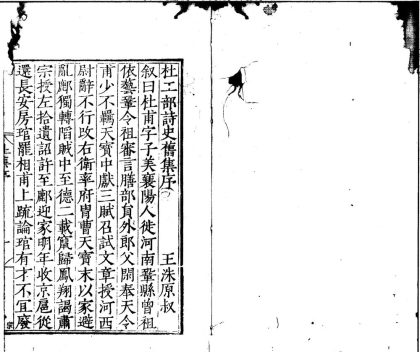 杜工部詩史舊集序
王洙原叔
叙曰杜甫字子美襄陽人徙河南鞏縣曾祖
依藝鞏令祖審言膳部員外郎父閑奉天令
甫少不羈天寶中獻三賦召試文章授河西
尉辭不行改右衛率府胄曹天寶末以家避
亂鄜獨轉陷賊中至德二載竄歸鳳翔謁肅
宗授左拾遺詔許至鄜迎家明年收京扈從
還長安房琯罷相甫上疏論琯有才不宜廢